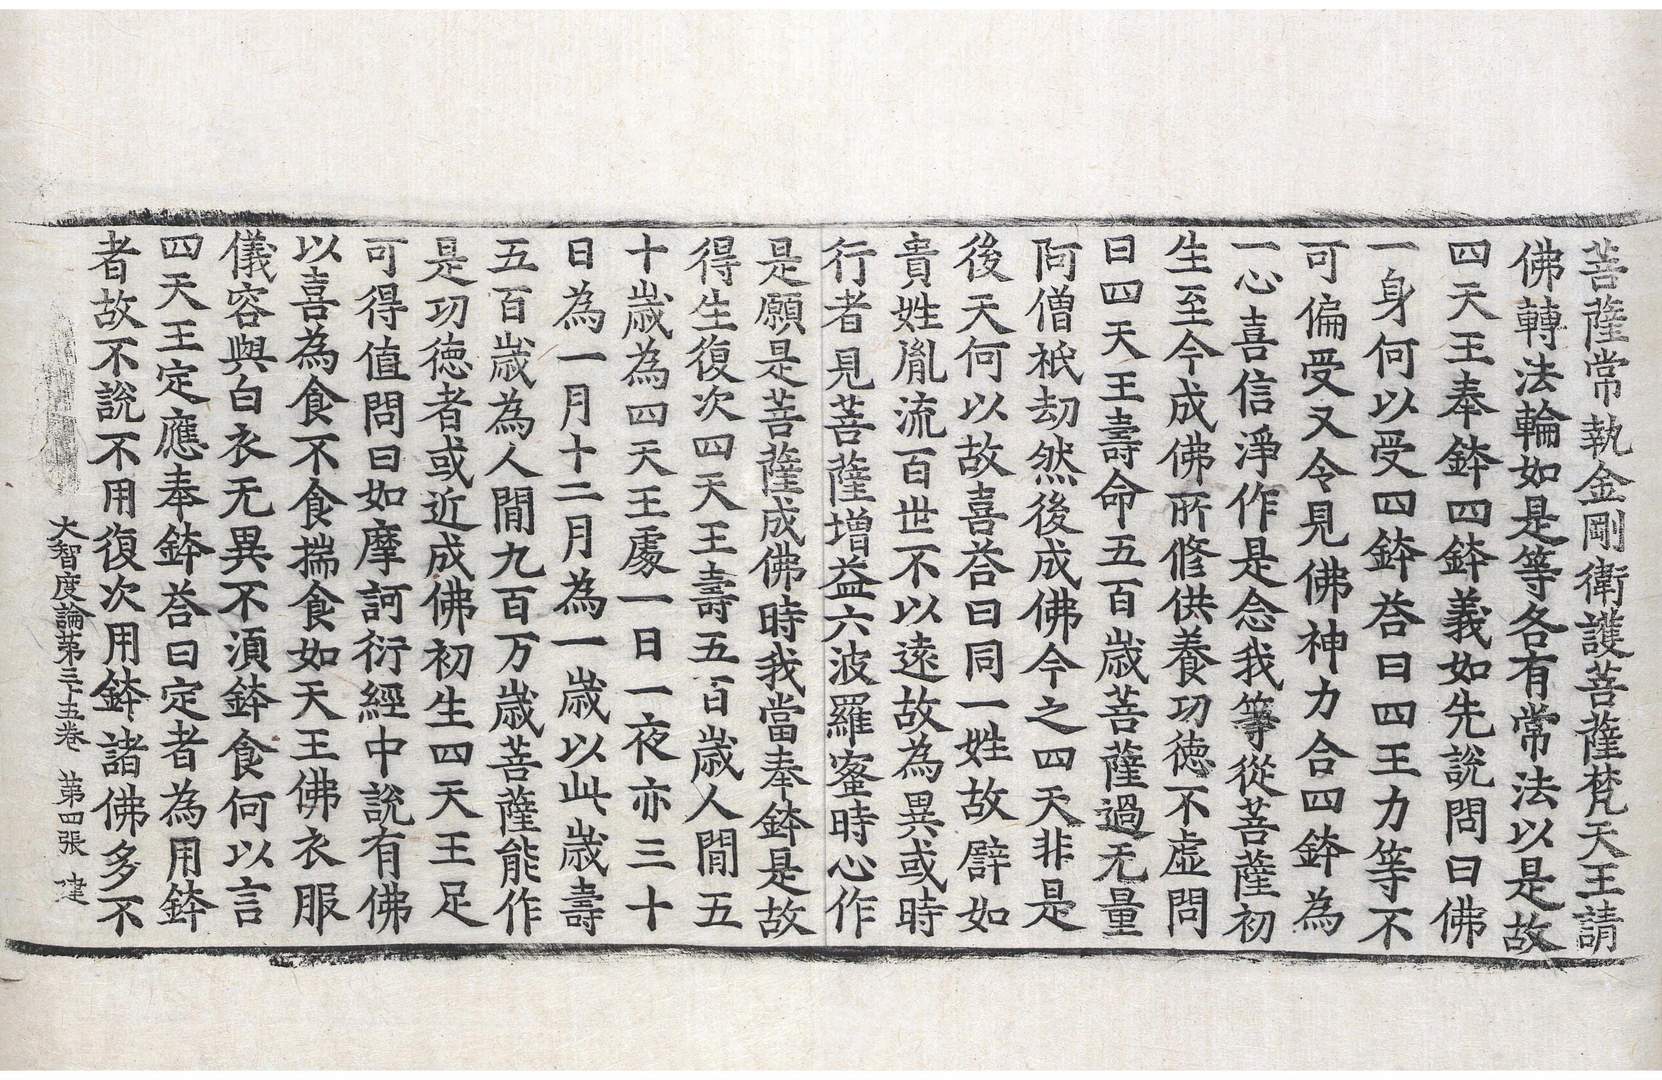 菩薩常執金剛衛護菩薩梵天王請
佛轉法輪如是等各有常法以是故
四天王奉鉢四鉢義如先說問曰佛
一身何以受四鉢荅曰四王力等不
可偏受又令見佛神力合四鉢為
一心喜信淨作是念我等從菩薩初
生至今成佛所修供養功徳不虛問
曰四天王壽命五百歲菩薩過无量
阿僧祇劫然後成佛今之四天非是
後天何以故喜荅曰同一姓故譬如
貴姓胤流百世不以遠故為異或時
行者見菩薩增益六波羅蜜時心作
是願是菩薩成佛時我當奉鉢是故
得生復次四天王壽五百歲人間五
十歲為四天王處一日一夜亦三十
日為一月十二月為一歲以此歲壽
五百歲為人間九百万歲菩薩能作
是功徳者或近成佛初生四天王足
可得值問曰如摩訶衍經中說有佛
以喜為食不食揣食如天王佛衣服
儀容與白衣无異不湏鉢食何以言
四天王定應奉鉢荅曰定者為用鉢
者故不說不用復次用鉢諸佛多不
大智度論第三十五卷 第四張 建